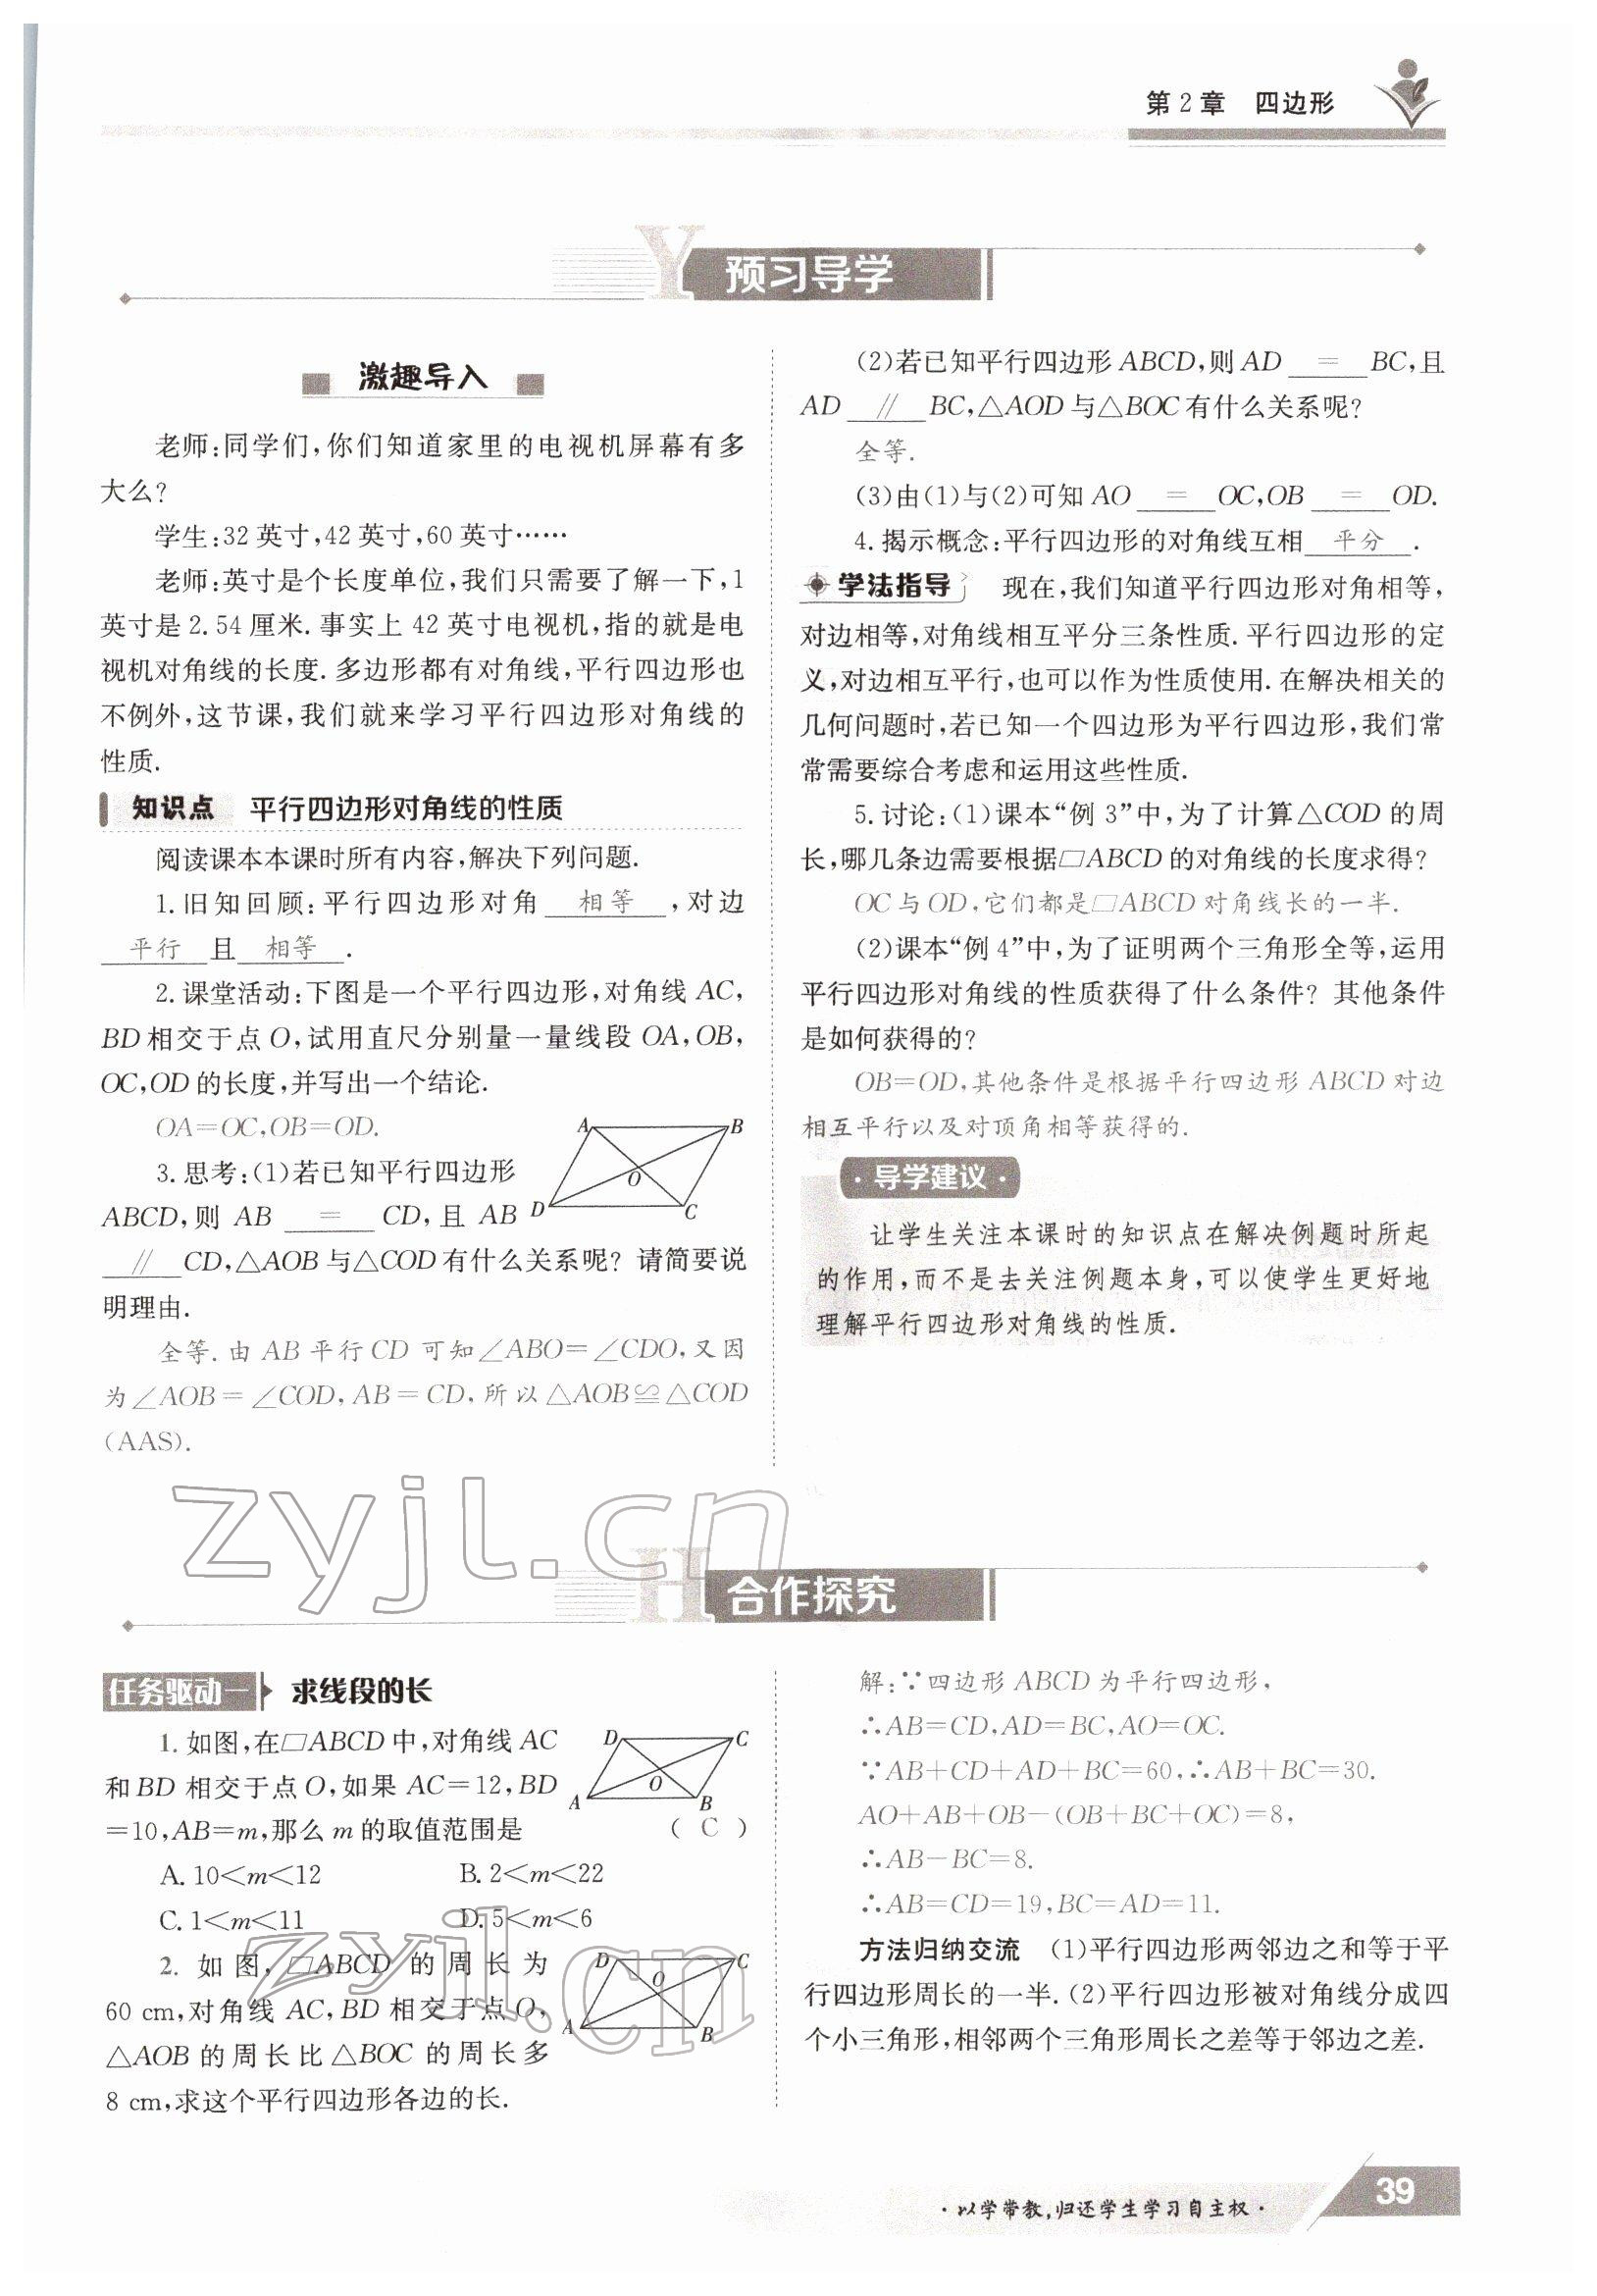 第2章 四边形
预习导学
激趣导入
老师:同学们,你们知道家里的电视机屏幕有多
大么?
学生:32英寸,42英寸,60英寸……
老师:英寸是个长度单位,我们只需要了解一下,1
英寸是2.54厘米.事实上42英寸电视机,指的就是电
视机对角线的长度.多边形都有对角线,平行四边形也
不例外,这节课,我们就来学习平行四边形对角线的
性质.
知识点 平行四边形对角线的性质
阅读课本本课时所有内容,解决下列问题.
1.旧知回顾:平行四边形对角 相等 ,对边
平行 且 相等 .
2.课堂活动:下图是一个平行四边形,对角线AC,
BD相交于点O,试用直尺分别量一量线段OA,OB,
OC,OD的长度,并写出一个结论.
OA=OC,OB=OD.
A B
O
D C
3.思考:(1)若已知平行四边形
ABCD,则 AB = CD,且 AB
∥ CD,△AOB与△COD有什么关系呢?请简要说
明理由.
全等.由AB平行CD可知∠ABO=∠CDO,又因
为∠AOB=∠COD,AB=CD,所以△AOB≌△COD
(AAS).
(2)若已知平行四边形ABCD,则AD = BC,且
AD ∥ BC,△AOD与△BOC有什么关系呢?
全等.
(3)由(1)与(2)可知AO = OC,OB = OD.
4.揭示概念:平行四边形的对角线互相 平分 .
学法指导 现在,我们知道平行四边形对角相等,
对边相等,对角线相互平分三条性质.平行四边形的定
义,对边相互平行,也可以作为性质使用.在解决相关的
几何问题时,若已知一个四边形为平行四边形,我们常
常需要综合考虑和运用这些性质.
5.讨论:(1)课本“例3”中,为了计算△COD的周
长,哪几条边需要根据□ABCD的对角线的长度求得?
OC与OD,它们都是□ABCD对角线长的一半.
(2)课本“例4”中,为了证明两个三角形全等,运用
平行四边形对角线的性质获得了什么条件?其他条件
是如何获得的?
OB=OD,其他条件是根据平行四边形ABCD对边
相互平行以及对顶角相等获得的.
·导学建议·
让学生关注本课时的知识点在解决例题时所起
的作用,而不是去关注例题本身,可以使学生更好地
理解平行四边形对角线的性质.
zyjl.cn
合作探究
任务驱动一 求线段的长
1.如图,在□ABCD中,对角线AC
和BD相交于点O,如果AC=12,BD
=10,AB=m,那么m的取值范围是 ( C )
D C
O
A B
A. 10<m<12 B. 2<m<22
C. 1<m<11 D. 5<m<6
zyjl.cn
2. 如图,□ABCD 的周长为
60 cm,对角线AC,BD相交于点O,
△AOB的周长比△BOC的周长多
8 cm,求这个平行四边形各边的长.
D C
O
A B
解:∵四边形ABCD为平行四边形,
∴AB=CD,AD=BC,AO=OC.
∵AB+CD+AD+BC=60,∴AB+BC=30.
AO+AB+OB-(OB+BC+OC)=8,
∴AB-BC=8.
∴AB=CD=19,BC=AD=11.
方法归纳交流 (1)平行四边形两邻边之和等于平
行四边形周长的一半.(2)平行四边形被对角线分成四
个小三角形,相邻两个三角形周长之差等于邻边之差.
·以学带教,归还学生学习自主权·
39